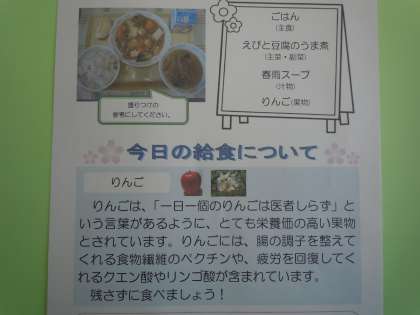 ごはん
(主食)
えびと豆腐のうま煮
(主菜・副菜)
春雨スープ
(汁物)
りんご(果物)
盛りつけの
参考にしてください。
今日の給食について
りんご
りんごは、「一日一個のりんごは医者しらず」と
いう言葉があるように、とても栄養価の高い果物
とされています。りんごには、腸の調子を整えて
くれる食物繊維のペクチンや、疲労を回復してく
れるクエン酸やリンゴ酸が含まれています。
残さずに食べましょう!